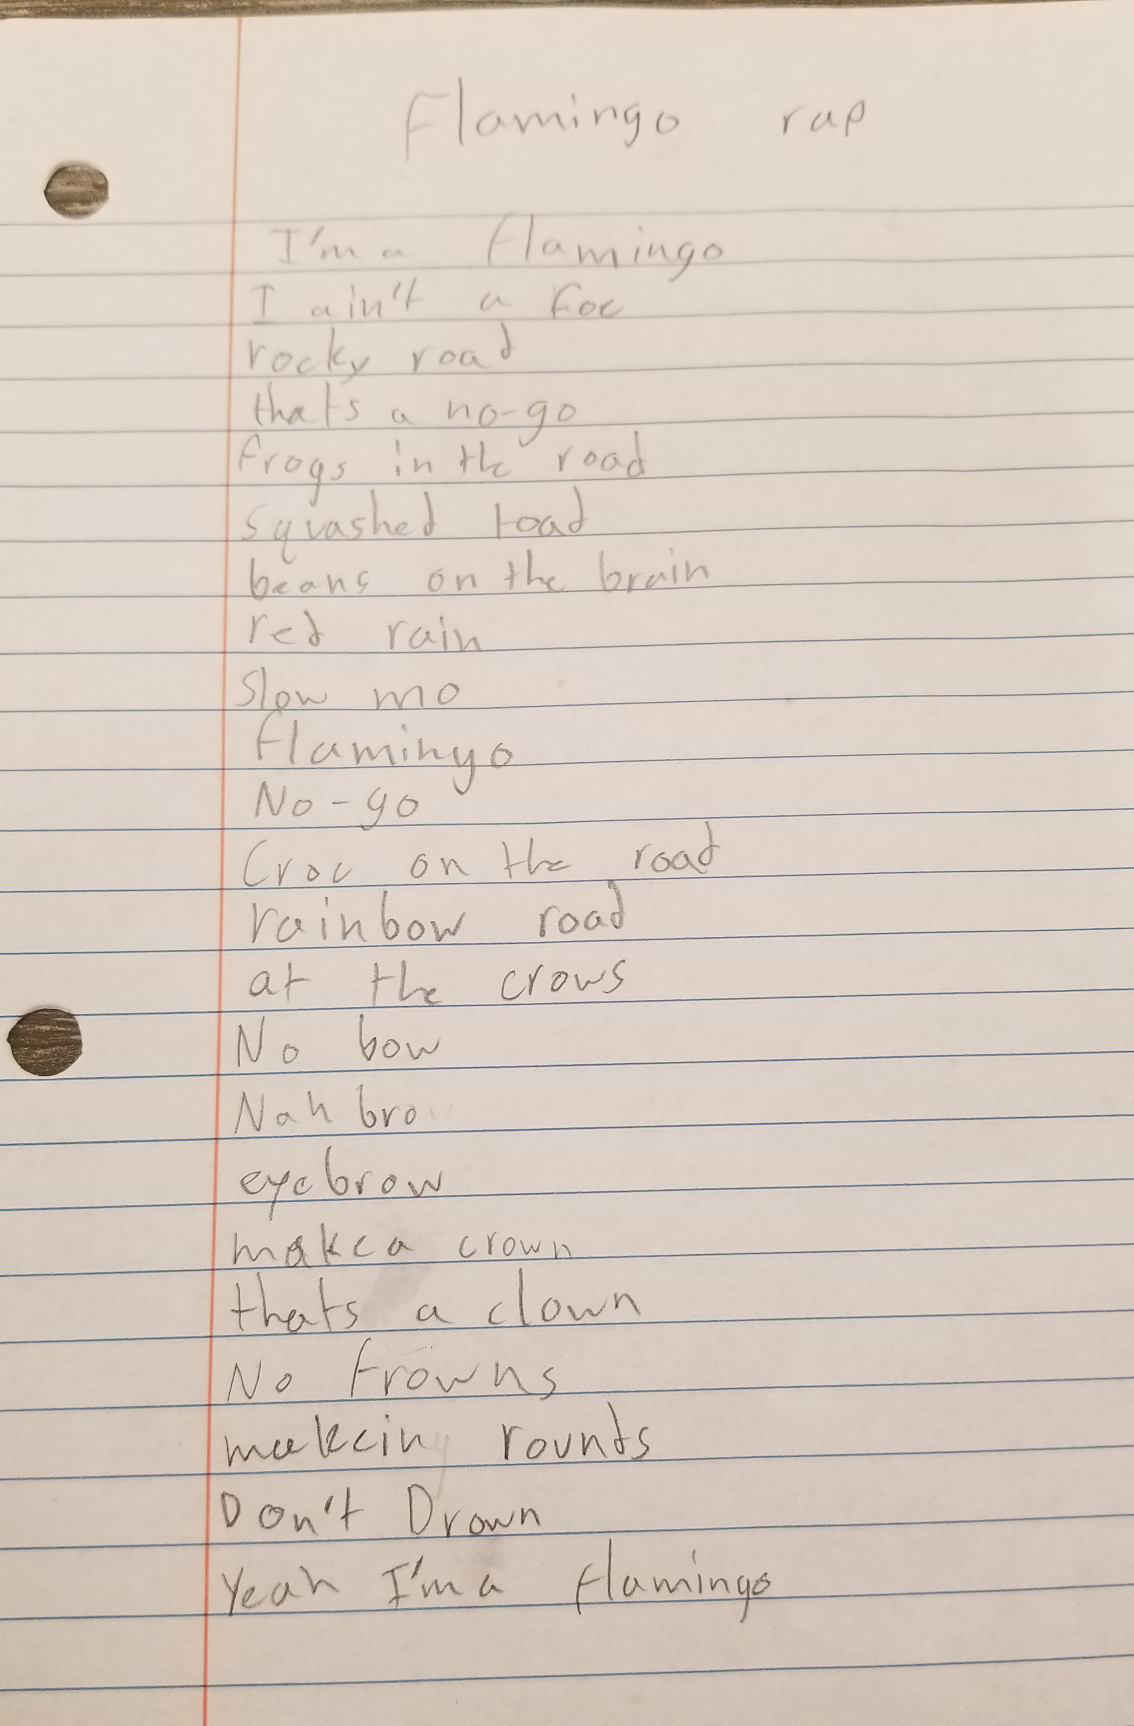 Flamingo rap
I'm a flamingo
I ain't a foe
rocky road
thats a no-go
frogs in the road
squashed toad
beans on the brain
red rain
slow mo
flamingo
No-go
Croc on the road
rainbow road
at the crows
No bow
Nah bro
eyebrow
make a crown
thats a clown
No frowns
makein rounds
Don't Drown
Yeah I'm a flamingo